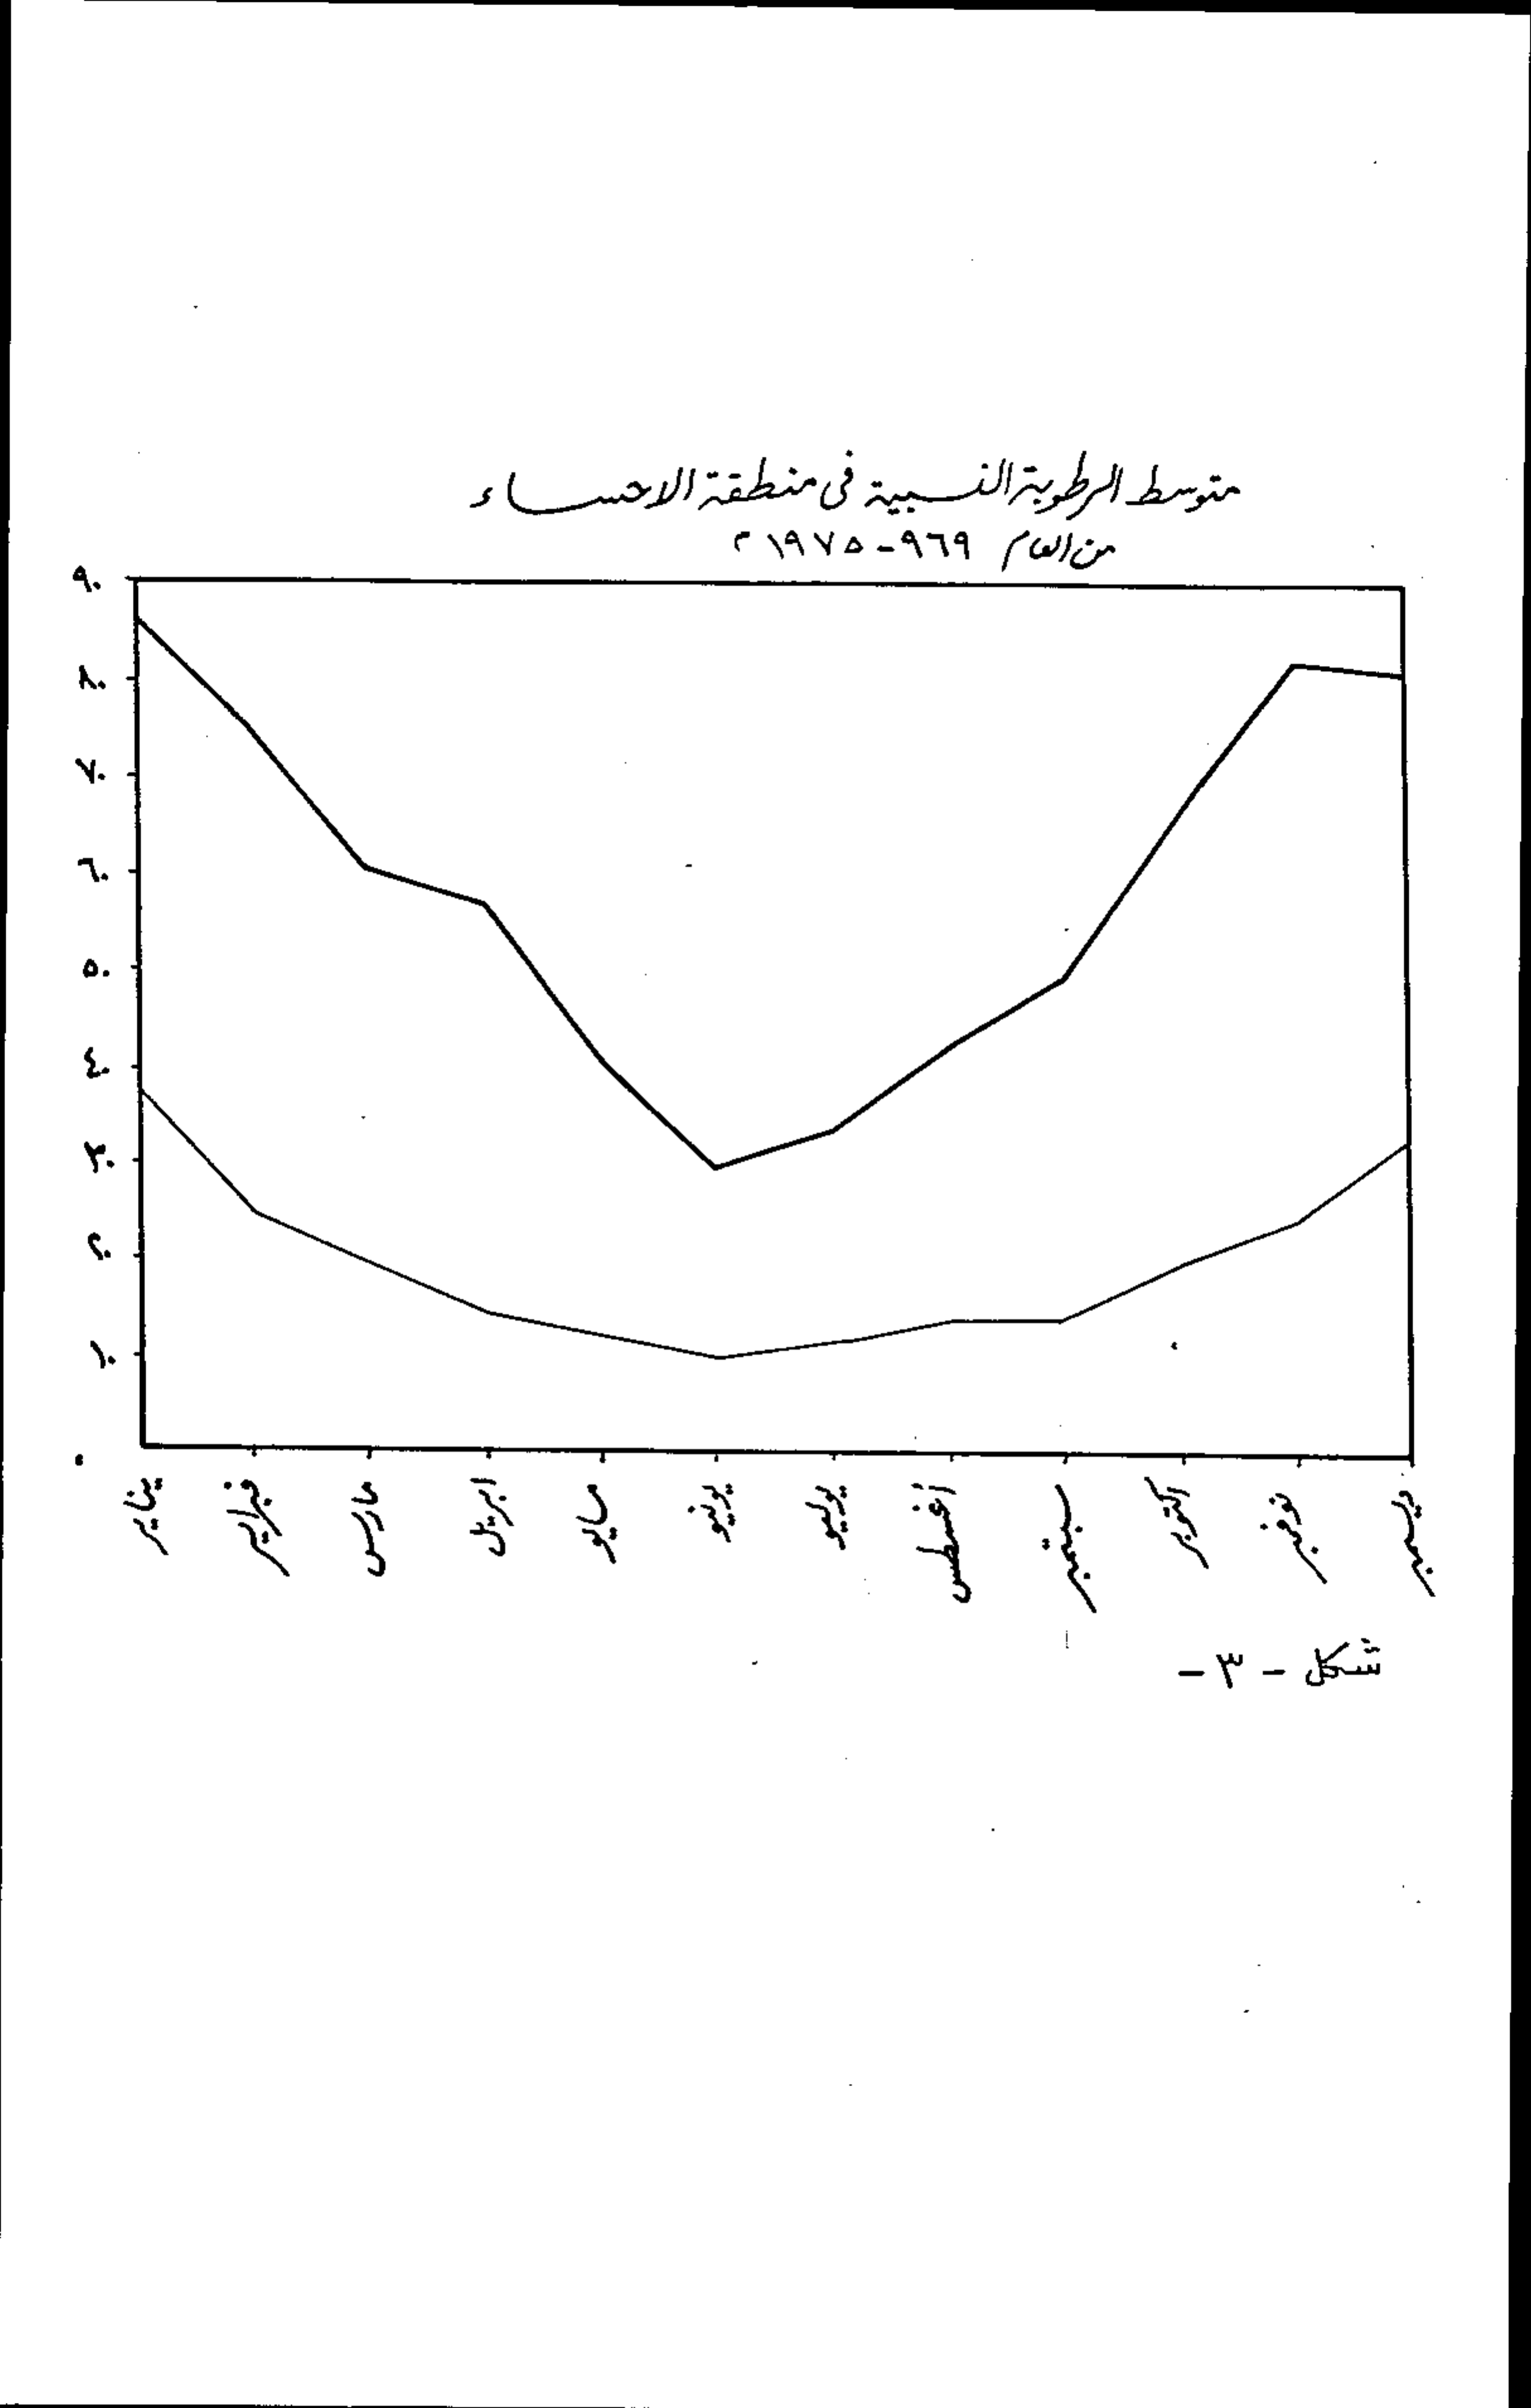 متوسط الرطوبة النسبية فى منطقة الاحساء
من العام ٩٦٩-١٩٧٥ م
٩٠
٨٠
٧٠
٦٠
٥٠
٤٠
٣٠
٢٠
١٠
٠
يناير فبراير مارس ابريل مايو يونيو يوليو أغسطس سبتمبر اكتوبر نوفمبر ديسمبر
شكل - ٣ -